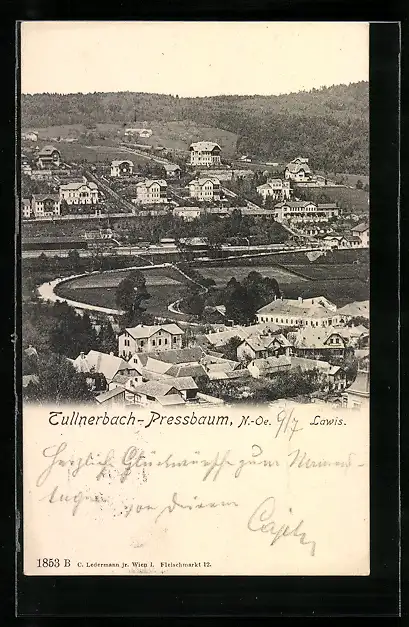 Tullnerbach-Pressbaum, N.-Oe. 9/7 Lawis.
Herzlich Glückwünsche zum Namens-
von Deinem
1853 B C. Ledermann jr. Wien I. Fleischmarkt 12.